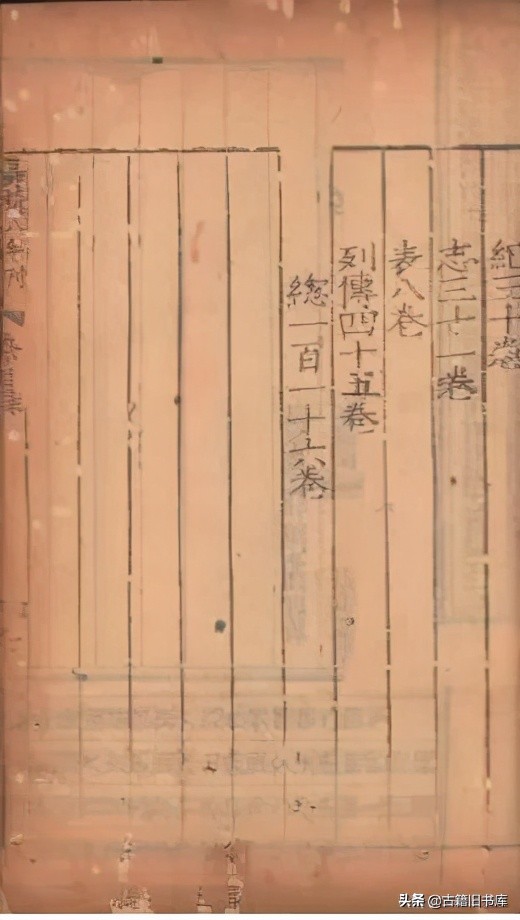 紀三十卷
志三十一卷
表八卷
列傳四十五卷
總一百一十六卷
嘉靖八年刊
头条 @古籍旧书库